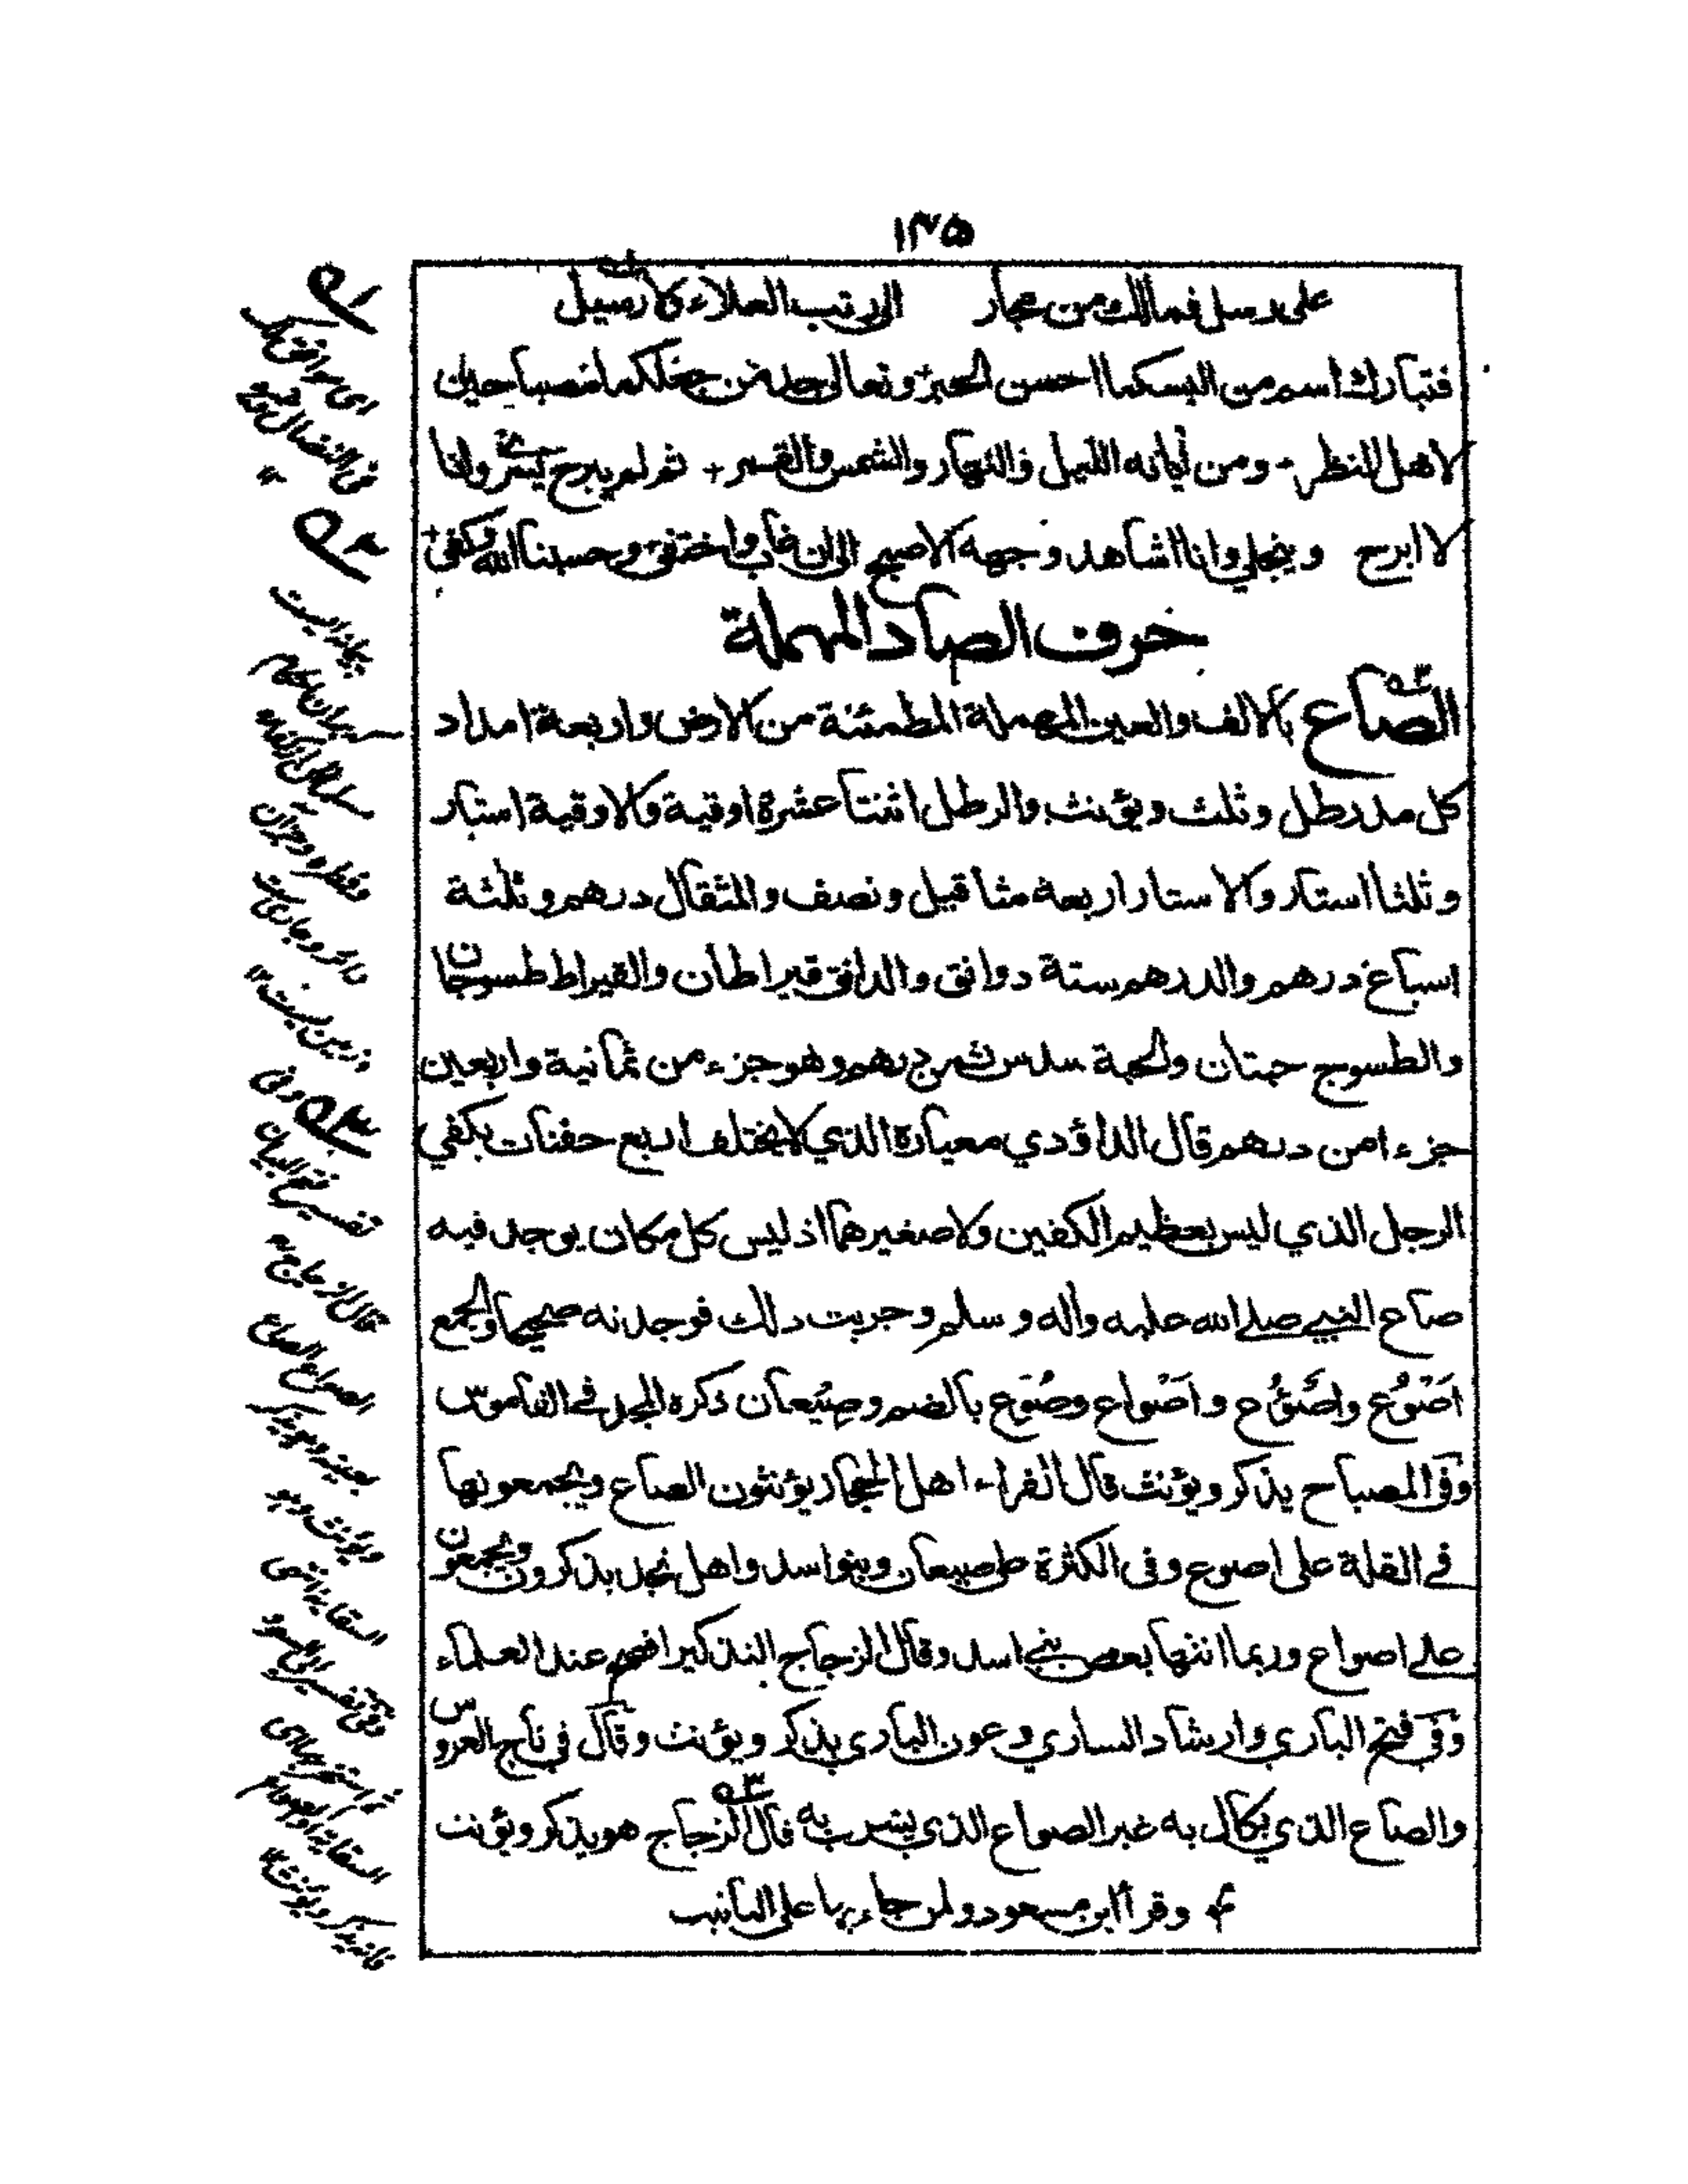 ١٣٥
على رسل فمالك من مجار الى رتب العلاء
فتبارك اسم من البسكما احسن الحبر وتعالى جد من جعلكما مصباحين
لاهل النظر + ومن أياته الليل والنهار والشمس والقمر + ثم لم يبرح وانا
لا ابرح وانا اشاهد وجهه الاصبح الى ان غاب واختفى وحسبنا الله وكفى +
حرف الصاد المهملة
الصاع بالالف والعين المهملة المطمئنة من الارض واربعة امداد
كل مد رطل وثلث ويؤنث والرطل اثنتا عشرة اوقية والاوقية استار
وثلثا استار والاستار اربعة مثاقيل ونصف والمثقال درهم وثلثة
اسباع درهم والدرهم ستة دوانق والدانق قيراطان والقيراط طسوجان
والطسوج حبتان والحبة سدس ثمن درهم وهو جزء من ثمانية واربعين
جزءا من درهم قال الداؤدي معياره الذي لا يختلف اربع حفنات بكفي
الرجل الذي ليس بعظيم الكفين ولا صغيرهما اذ ليس كل مكان يوجد فيه
صاع النبي صلى الله عليه وأله وسلم وجربت ذلك فوجدته صحيحا والجمع
اَصْوُع واَصْؤُع واَصْواع وصُوع بالضم وصِيْعان ذكره المجد في القاموس
وفي المصباح يذكر ويؤنث قال الفراء اهل الحجاز يؤنثون الصاع ويجمعونها
في القلة على اصوع وفى الكثرة على صيعان وبنو اسد واهل نجد يذكرون ويجمعون
على اصواع وربما انثها بعض بني اسد وقال الزجاج التذكير افصح عند العلماء
وفي فتح الباري وارشاد الساري وعون الباري يذكر ويؤنث وقال في تاج العروس
والصاع الذي يكال به غير الصواع الذي يشرب به قال الزجاج ٥٣ هو يذكر ويؤنث
وقرأ ابن مسعود ولمن جاء بها على التانيث
٥١
٥٢
٥٣ وفى
تفسير فتح البيان
قال الزجاج
الصواع الصاع
بعينه وهو يذكر
ويؤنث وهو
السقاية
وفى تفسير ابى السعود
السقاية او الصواع
فانه يذكر ويؤنث ١٢